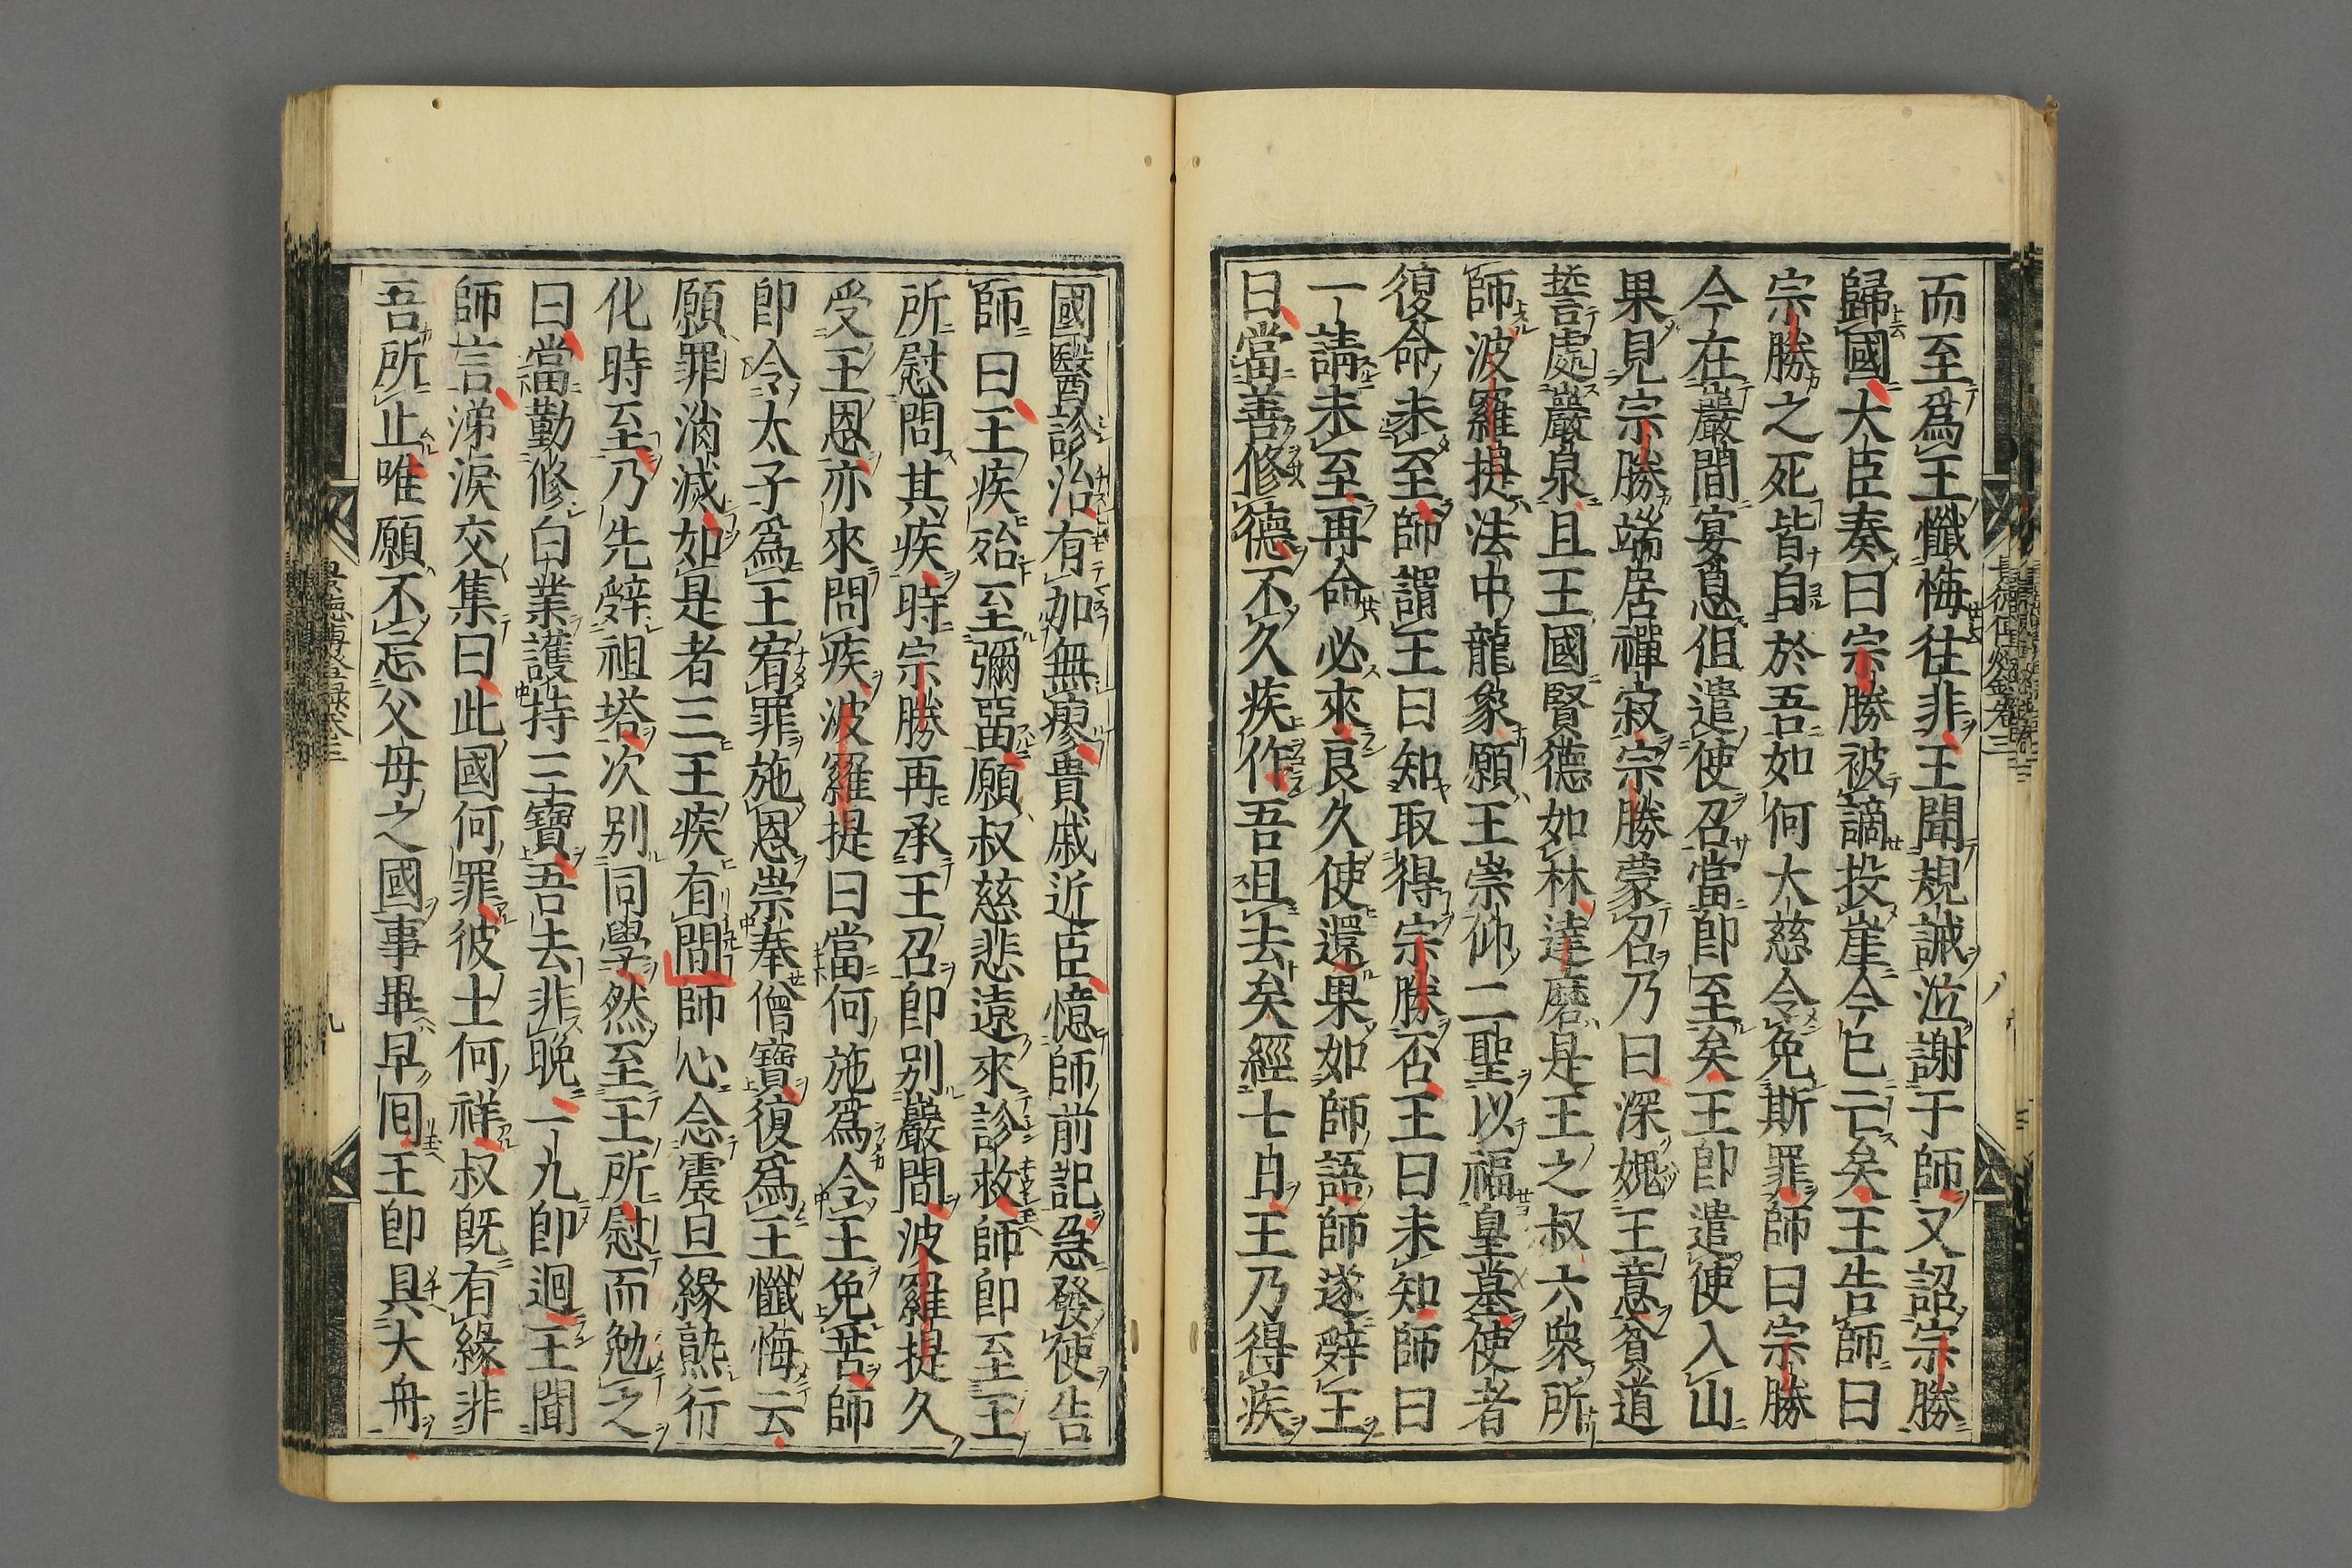 而至爲王懺悔往非王聞規誡泣謝于師又詔宗勝
歸國大臣奏曰宗勝被謫投崖今已亡矣王告師曰
宗勝之死皆自於吾如何大慈令免斯罪師曰宗勝
今在巖間宴息但遣使召當卽至矣王卽遣使入山
果見宗勝端居禪寂宗勝蒙召乃曰深媿王意貧道
誓處巖泉且王國賢德如林達磨是王之叔六衆所
師波羅提法中龍象願王崇仰二聖以福皇基使者
復命未至師謂王曰知取得宗勝否王曰未知師曰
一請未至再命必來良久使還果如師語師遂辭王
曰當善修德不久疾作吾且去矣經七日王乃得疾
國醫診治有加無瘳貴戚近臣憶師前記急發使告
師曰王疾殆至彌畱願叔慈悲遠來診救師卽至王
所慰問其疾時宗勝再承王召卽别巖間波羅提久
受王恩亦來問疾波羅提曰當何施爲令王免苦師
卽令太子爲王宥罪施恩崇奉僧寶復爲王懺悔云
願罪消滅如是者三王疾有間師心念震旦緣熟行
化時至乃先辭祖塔次别同學然至王所慰而勉之
曰當勤修白業護持三寶吾去非晚一九卽迴王聞
師言涕淚交集曰此國何罪彼土何祥叔既有緣非
吾所止唯願不忘父母之國事畢早回王卽具大舟
景德傳燈録卷三
九